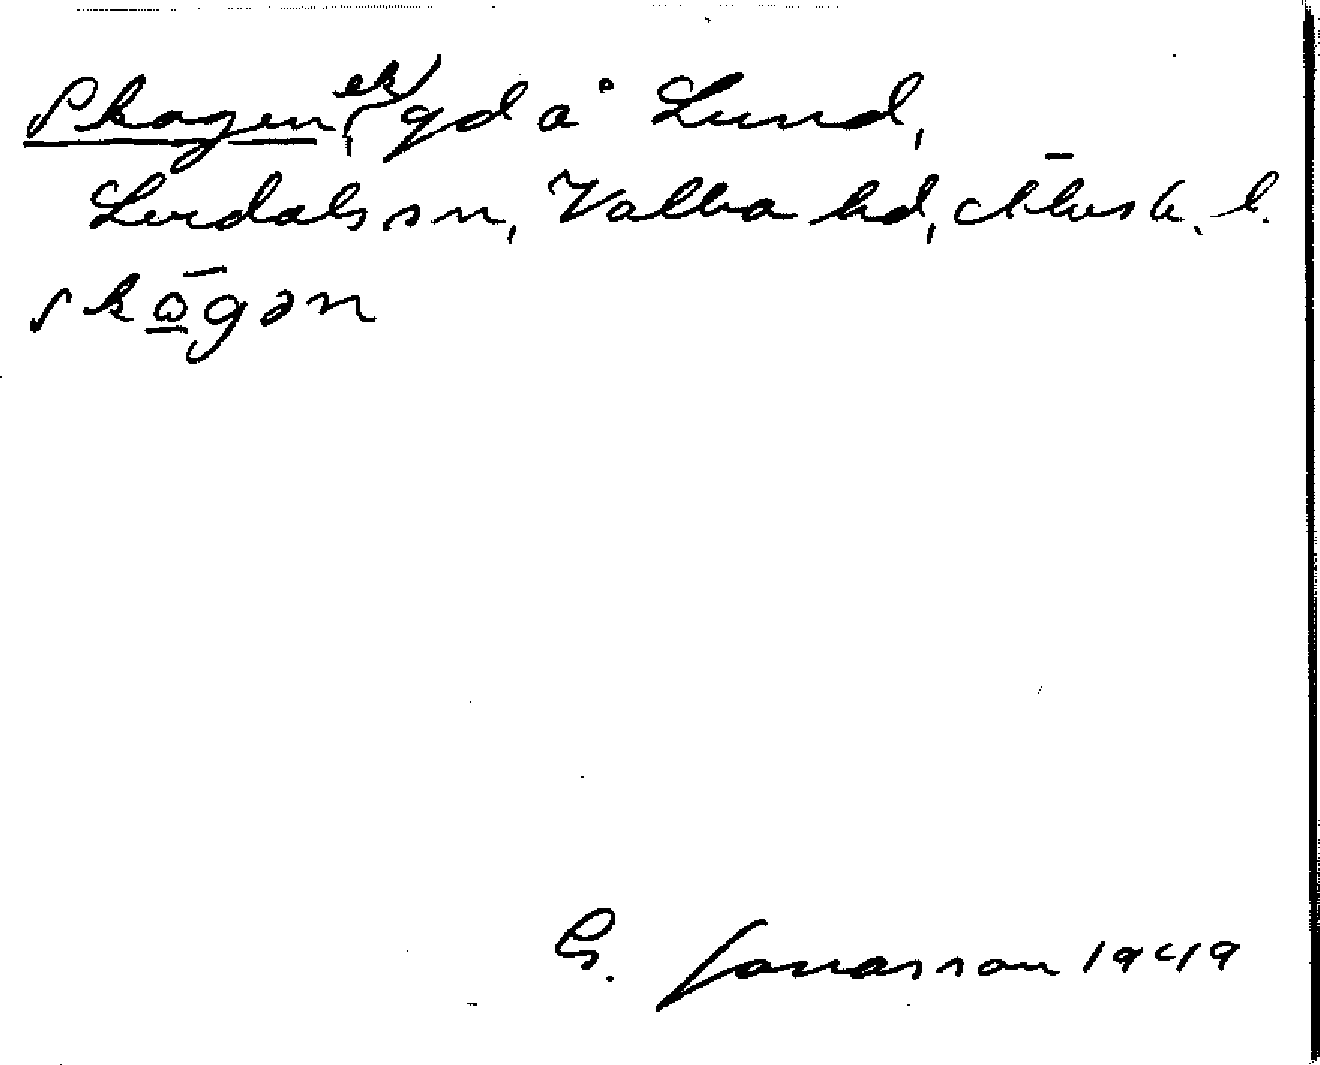 Skogen, (ek) gd å Lund,
Lerdals sn, Valbo hd, Älvsb. l.
skω̱̄gən
G. Jonasson 1949